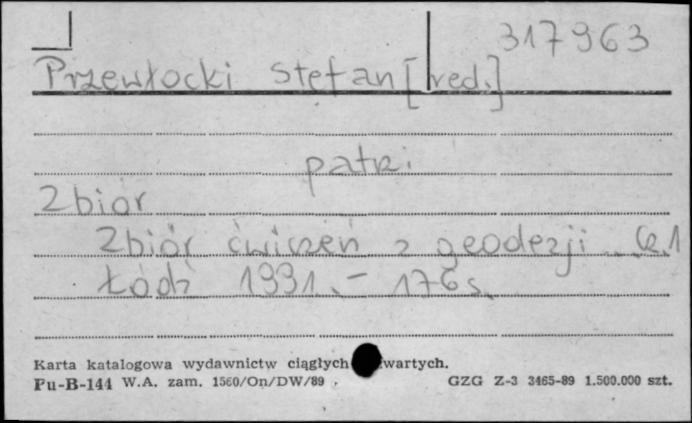 317963
Przewłocki Stefan [red.]
patrz.
Zbiór
Zbiór ćwiczeń z geodezji. Cz. 1
Łódź 1991. - 176 s.
Karta katalogowa wydawnictw ciągłych wartych.
Pu-B-144 W.A. zam. 1560/On/DW/89
GZG Z-3 3465-89 1.500.000 szt.